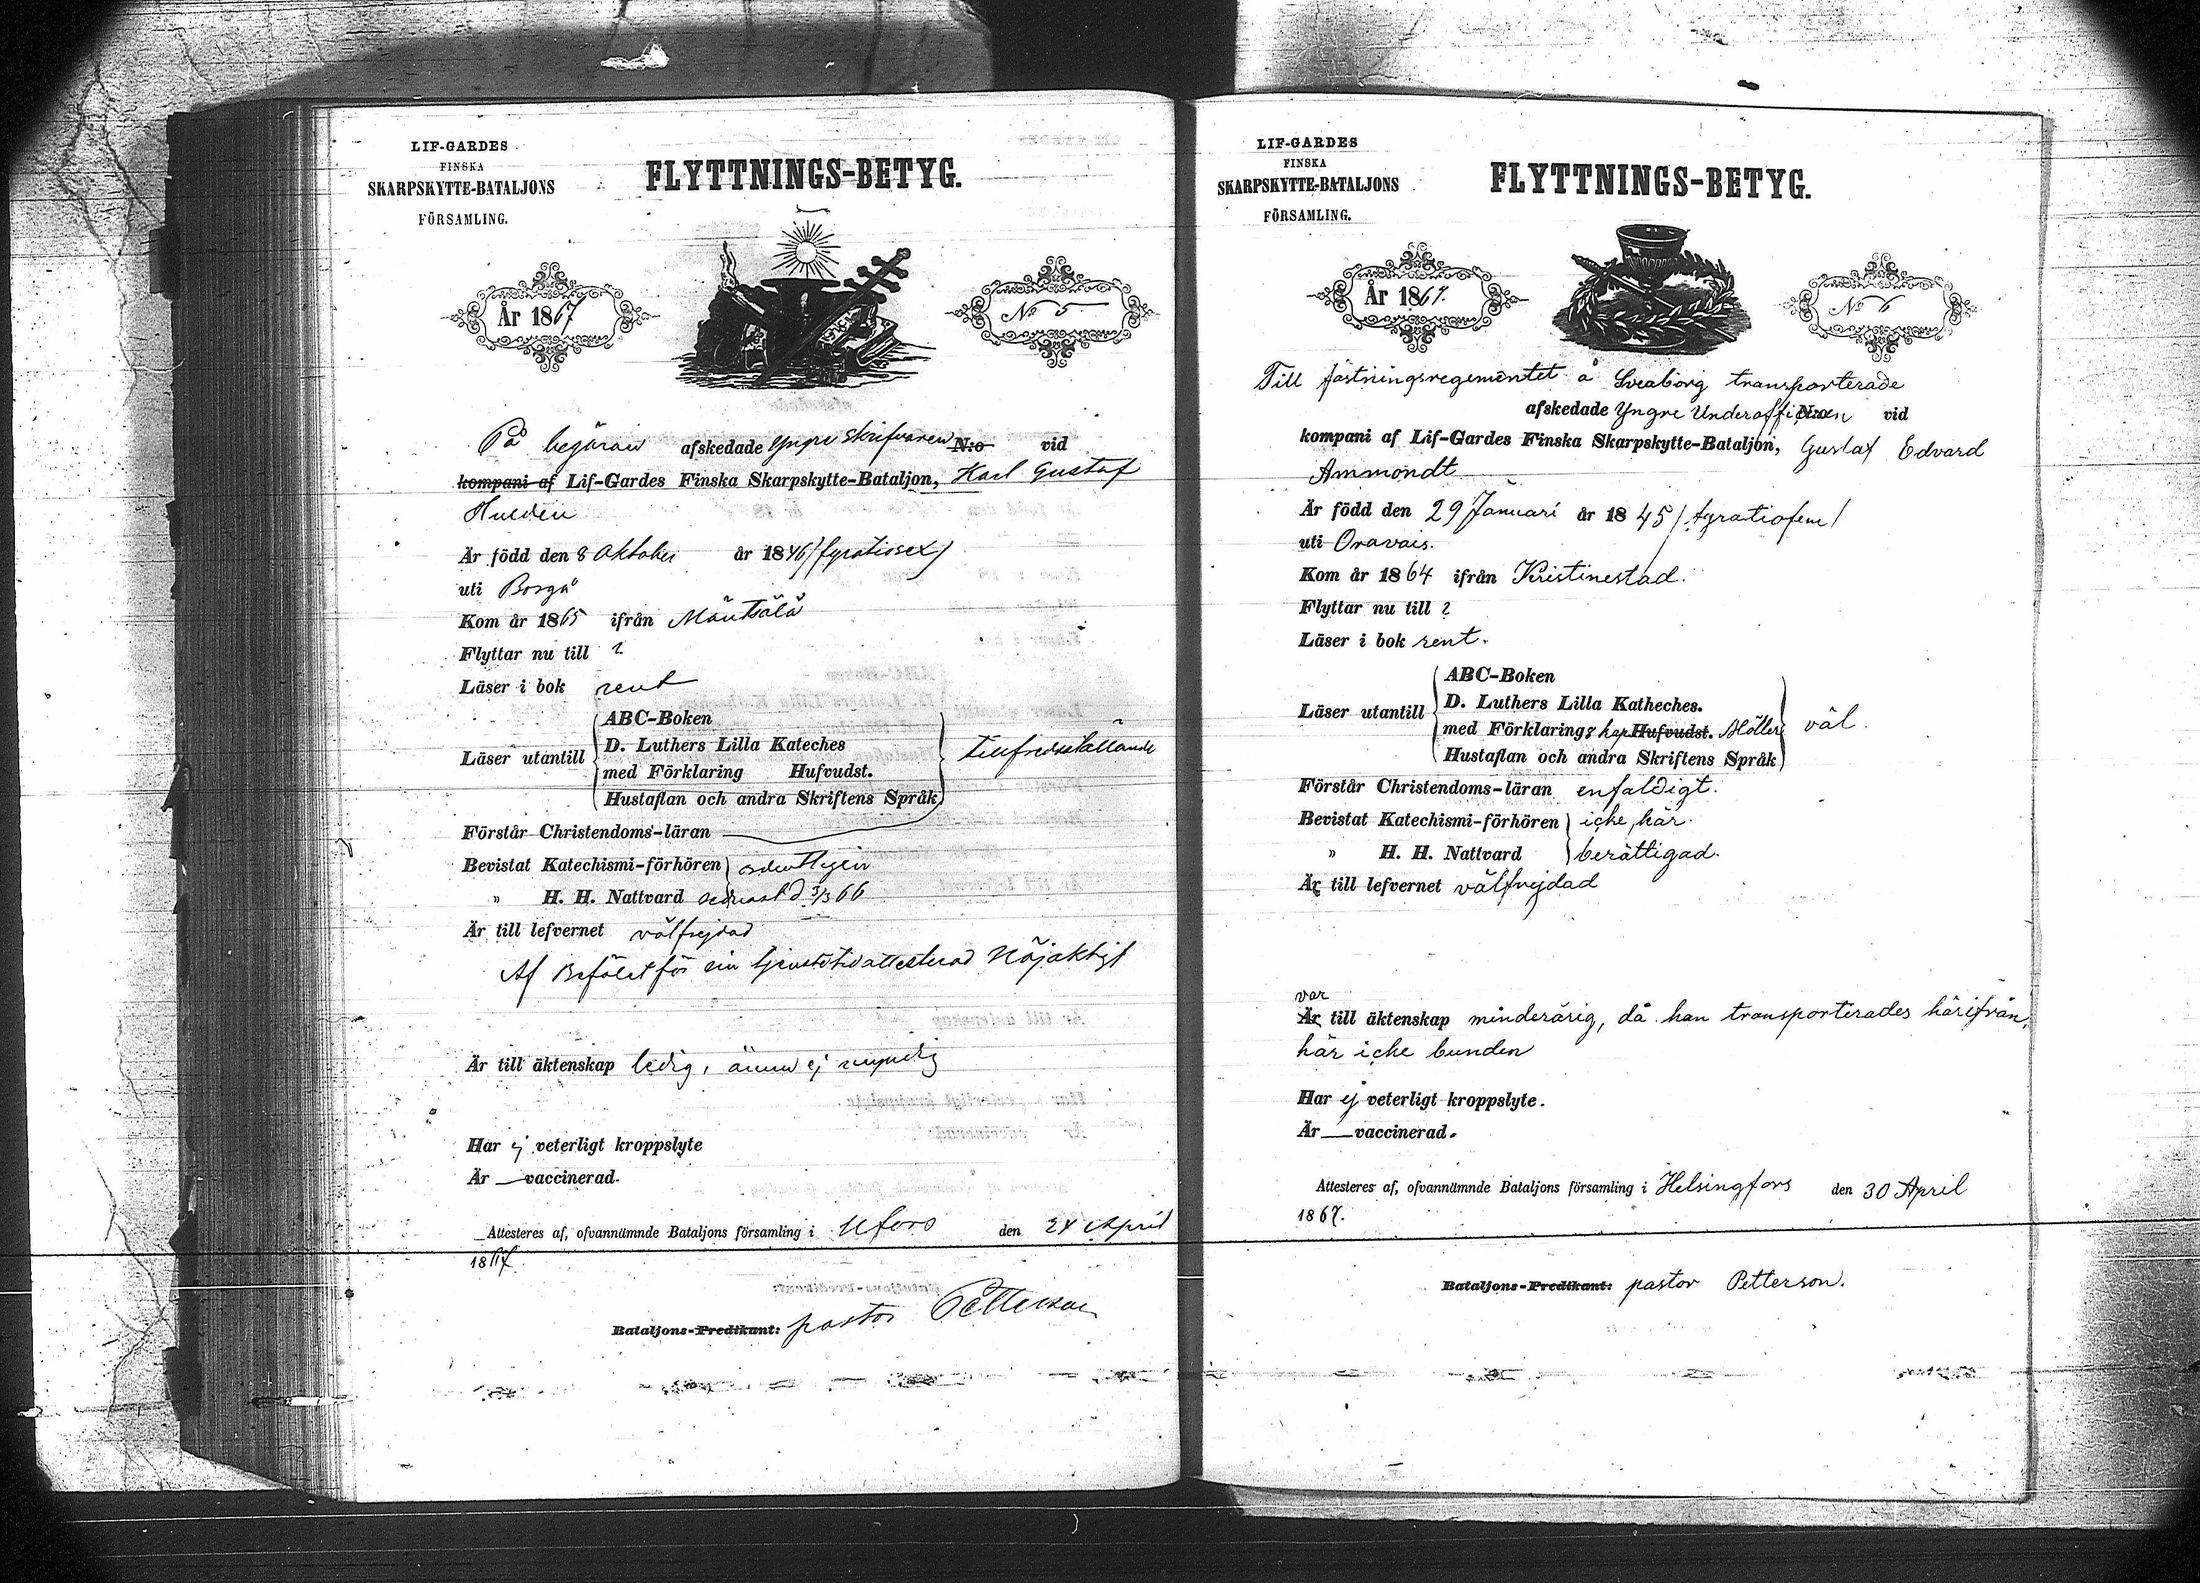 LIF-GARDES
FINSKA
SKARPSKYTTE-BATALJONS
FÖRSAMLING.
FLYTTNINGS-BETYG.
År 1867
No 5
På begäran afskedade Yngre Skrifvaren N:o vid
kompani af Lif-Gardes Finska Skarpskytte-Bataljon, Karl Gustaf
Är född den 8 Oktober år 1846 (fyratiosex)
uti Borgå
Kom år 1865 ifrån Mäntsälä
Flyttar nu till ?
Läser i bok rent
Läser utantill
ABC-Boken
D. Luthers Lilla Kateches
med Förklaring Hufvudst.
Hustaflan och andra Skriftens Språk
tillfredsställande
Förstår Christendoms-läran
Bevistat Katechismi-förhören ordentligen
" H. H. Nattvard senast d 3/3 66
Är till lefvernet välfrejdad
Af Befälet för sin tjenstetid attesterad Nöjaktigt
Är till äktenskap ledig, ännu ej myndig
Har ej veterligt kroppslyte
Är — vaccinerad.
Attesteres af, ofvannämnde Bataljons församling i Hfors den 24 April
1867
Bataljons-Predikant: pastor Petterson
LIF-GARDES
FINSKA
SKARPSKYTTE-BATALJONS
FÖRSAMLING.
FLYTTNINGS-BETYG.
År 1867.
No 6
Till fästningsregementet å Sveaborg transporterade
afskedade Yngre Underofficeren N:o vid
kompani af Lif-Gardes Finska Skarpskytte-Bataljon, Gustaf Edvard
Ammondt
Är född den 29 Januari år 1845 / fyratiofem /
uti Oravais.
Kom år 1864 ifrån Kristinestad.
Flyttar nu till ?
Läser i bok rent.
Läser utantill
ABC-Boken
D. Luthers Lilla Katheches.
med Förklarings kap Hufvudst. Möllers
Hustaflan och andra Skriftens Språk
väl.
Förstår Christendoms-läran enfaldigt.
Bevistat Katechismi-förhören icke här.
" H. H. Nattvard berättigad.
Är till lefvernet välfrejdad
var
Är till äktenskap minderårig, då han transporterades härifrån,
här icke bunden
Har ej veterligt kroppslyte.
Är — vaccinerad.
Attesteres af, ofvannämnde Bataljons församling i Helsingfors den 30 April
1867.
Bataljons-Predikant: pastor Petterson.